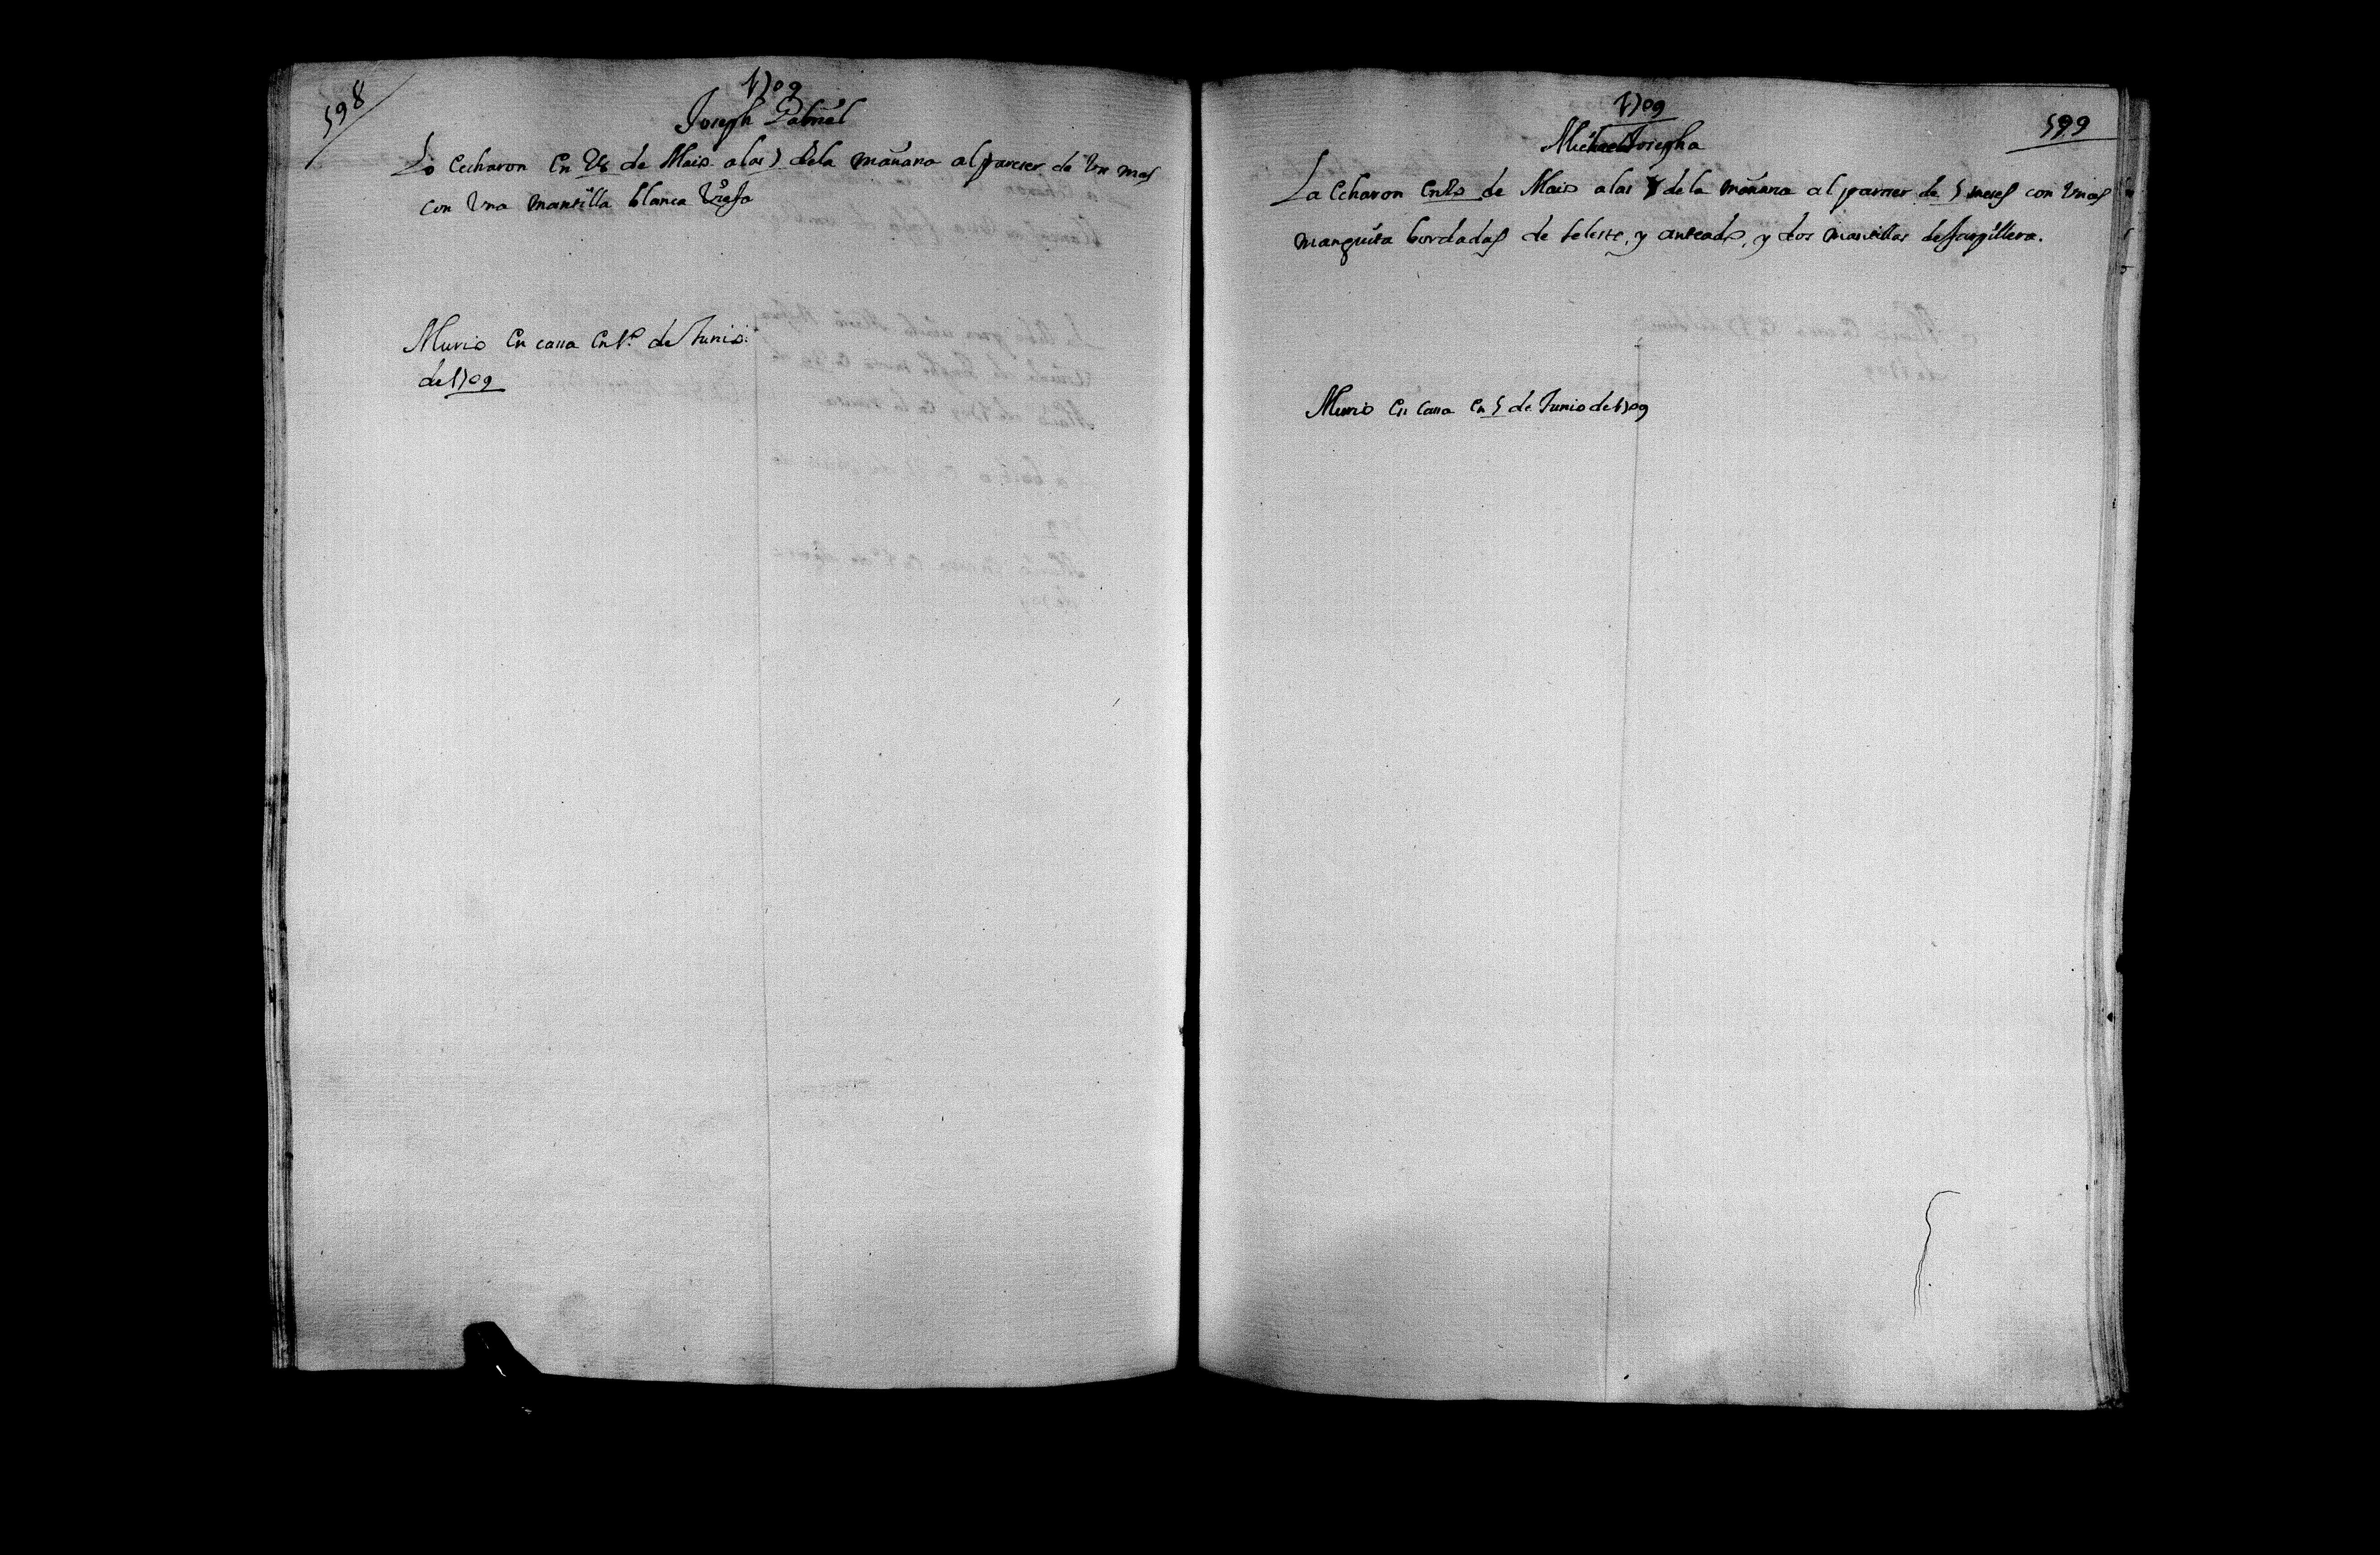 598
1709
Joseph Gabriel
Lo Echaron En 28 de Maio a las 7 de la mañana al pareser de Un mes
con Una mantilla blanca Viefa
Murio En cassa En 1º de Junio
de 1709
1709
599
Michaela Josepha
La Echaron En de Maio a las de la mañana al pareser de 5 meses con Unas
manguita bordadas de seleste, y anteado, y dos mantillas de sargillera.
Murio En cassa En 5 de Junio de 1709